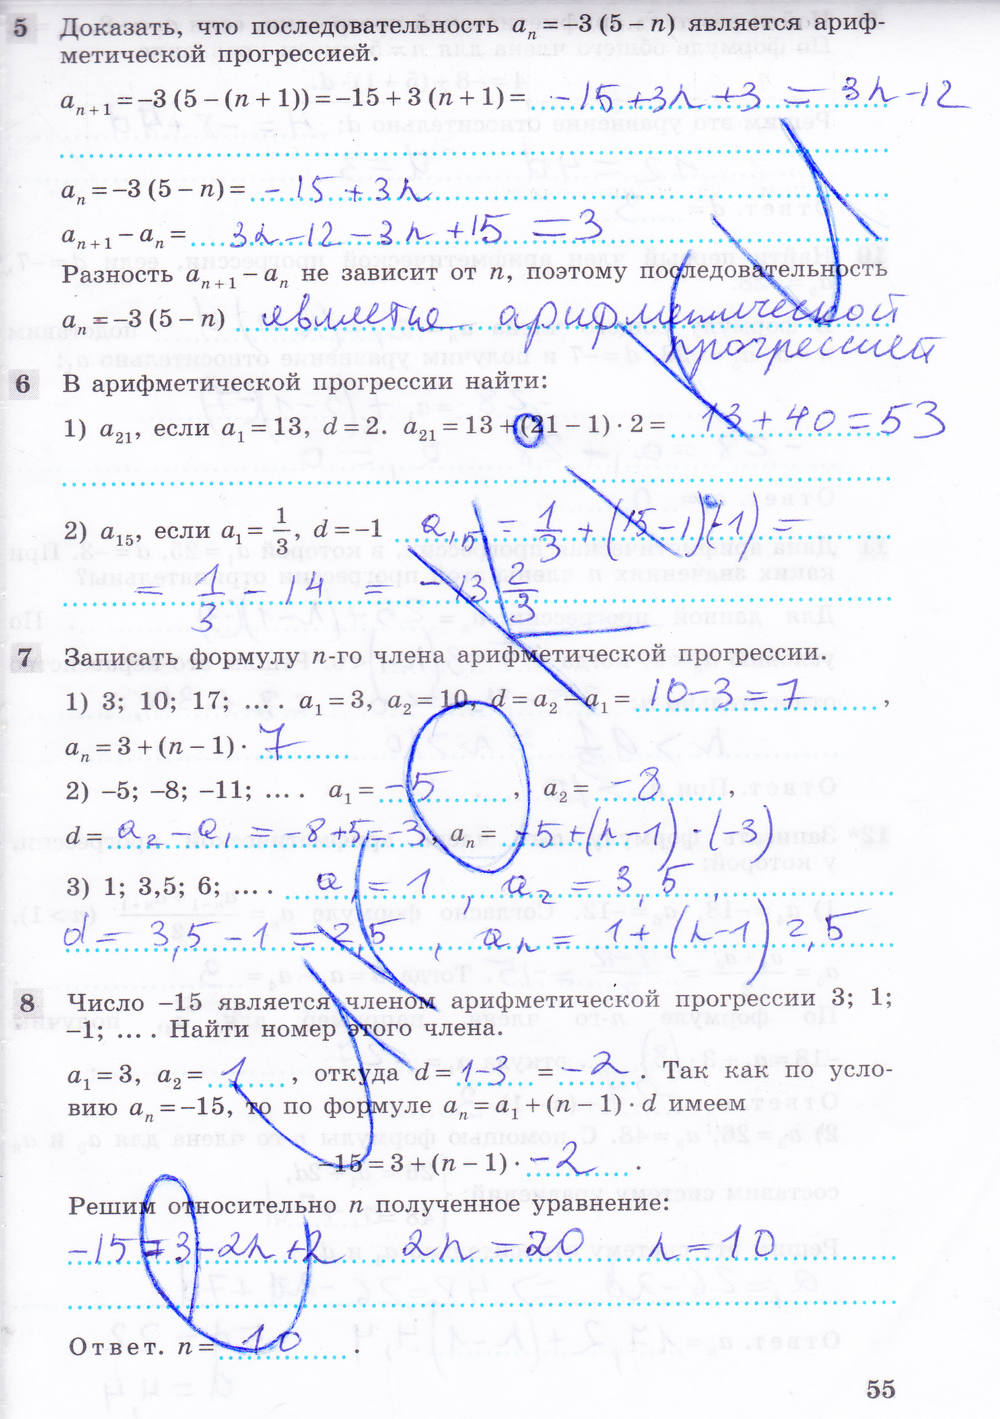 5 Доказать, что последовательность aₙ = −3 (5 − n) является ариф-
метической прогрессией.
aₙ₊₁ = −3 (5 − (n + 1)) = −15 + 3 (n + 1) = −15 + 3n + 3 = 3n − 12
aₙ = −3 (5 − n) = −15 + 3n
aₙ₊₁ − aₙ = 3n − 12 − 3n + 15 = 3
Разность aₙ₊₁ − aₙ не зависит от n, поэтому последовательность
aₙ = −3 (5 − n) является арифметической
прогрессией
6 В арифметической прогрессии найти:
1) a₂₁, если a₁ = 13, d = 2. a₂₁ = 13 + (21 − 1) · 2 = 13 + 40 = 53
2) a₁₅, если a₁ = 1/3, d = −1 a₁₅ = 1/3 + (15 − 1)(−1) =
= 1/3 − 14 = −13 2/3
7 Записать формулу n-го члена арифметической прогрессии.
1) 3; 10; 17; ... . a₁ = 3, a₂ = 10, d = a₂ − a₁ = 10 − 3 = 7 ,
aₙ = 3 + (n − 1) · 7
2) −5; −8; −11; ... . a₁ = −5 , a₂ = −8 ,
d = a₂ − a₁ = −8 + 5 = −3, aₙ = −5 + (n − 1) · (−3)
3) 1; 3,5; 6; ... . a₁ = 1 , a₂ = 3,5
d = 3,5 − 1 = 2,5 , aₙ = 1 + (n − 1) 2,5
8 Число −15 является членом арифметической прогрессии 3; 1;
−1; ... . Найти номер этого члена.
a₁ = 3, a₂ = 1 , откуда d = 1−3 = −2 . Так как по усло-
вию aₙ = −15, то по формуле aₙ = a₁ + (n − 1) · d имеем
−15 = 3 + (n − 1) · −2 .
Решим относительно n полученное уравнение:
−15 = 3 − 2n + 2 2n = 20 n = 10
Ответ. n = 10 .
55